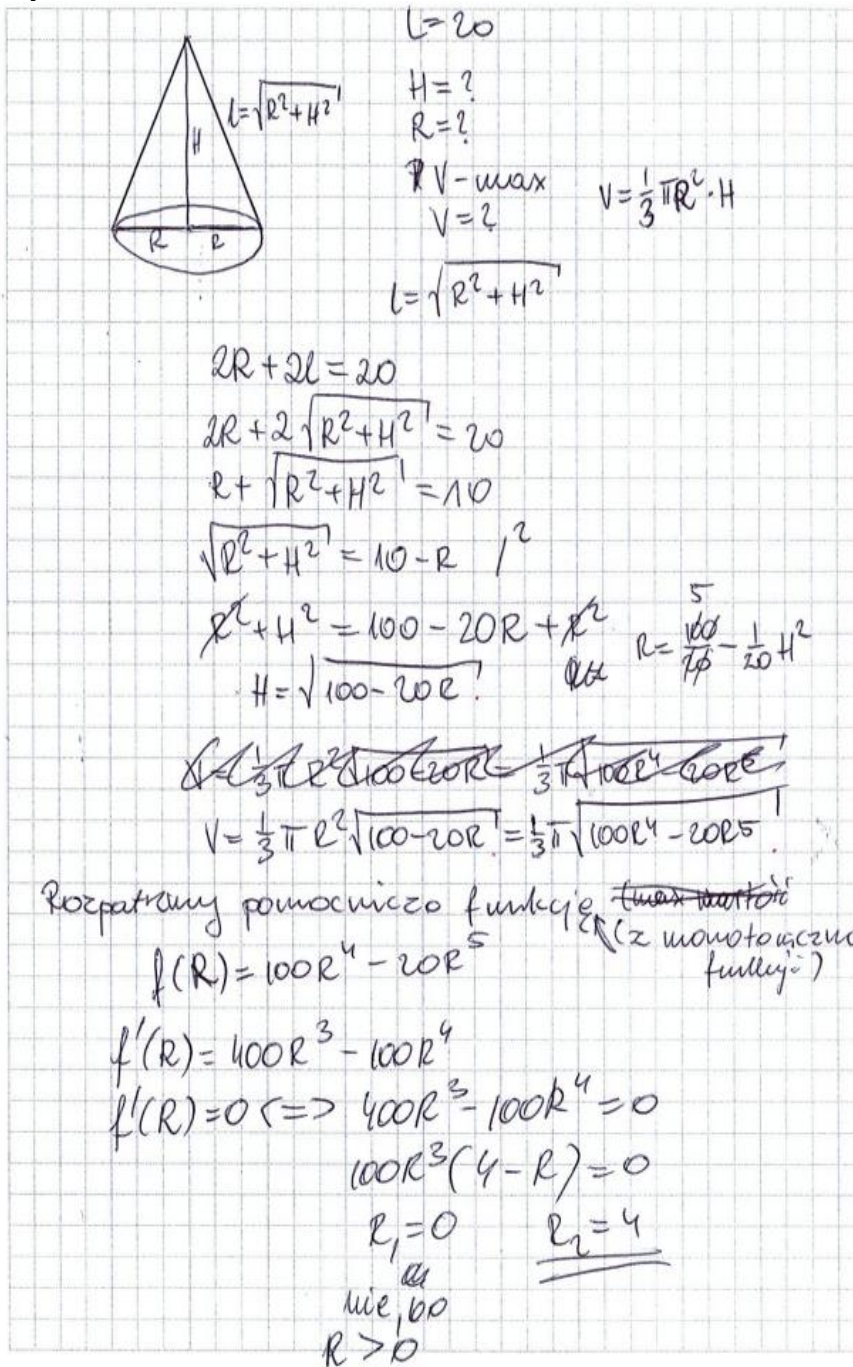 L=20
H=?
l=√(R²+H²)
H
R=?
V-max
V=⅓πR²·H
V=?
R R
l=√(R²+H²)
2R+2l=20
2R+2√(R²+H²)=20
R+√(R²+H²)=10
√(R²+H²)=10-R /²
R²+H²=100-20R+R²
5
R=100/20-1/20H²
H=√(100-20R)
V=⅓πR²√(100-20R)=⅓π√(100R⁴-20R⁵)
V=⅓πR²√(100-20R)=⅓π√(100R⁴-20R⁵)
Rozpatrzmy pomocniczo funkcję (max wartość
(z monotoniczno
funkcji)
f(R)=100R⁴-20R⁵
f'(R)=400R³-100R⁴
f'(R)=0 <=> 400R³-100R⁴=0
100R³(4-R)=0
R₁=0 R₂=4
nie, bo
R>0